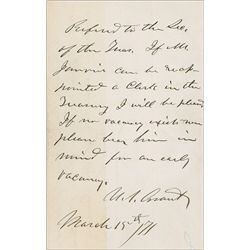 Referred to the Sec.
of the Treas. If Mr
can be reap-
pointed a Clerk in the
Treasury I will be pleased
If no vacancy exists now
please bear him in
mind for an early
vacancy.
U.S. Grant
March 15th /71